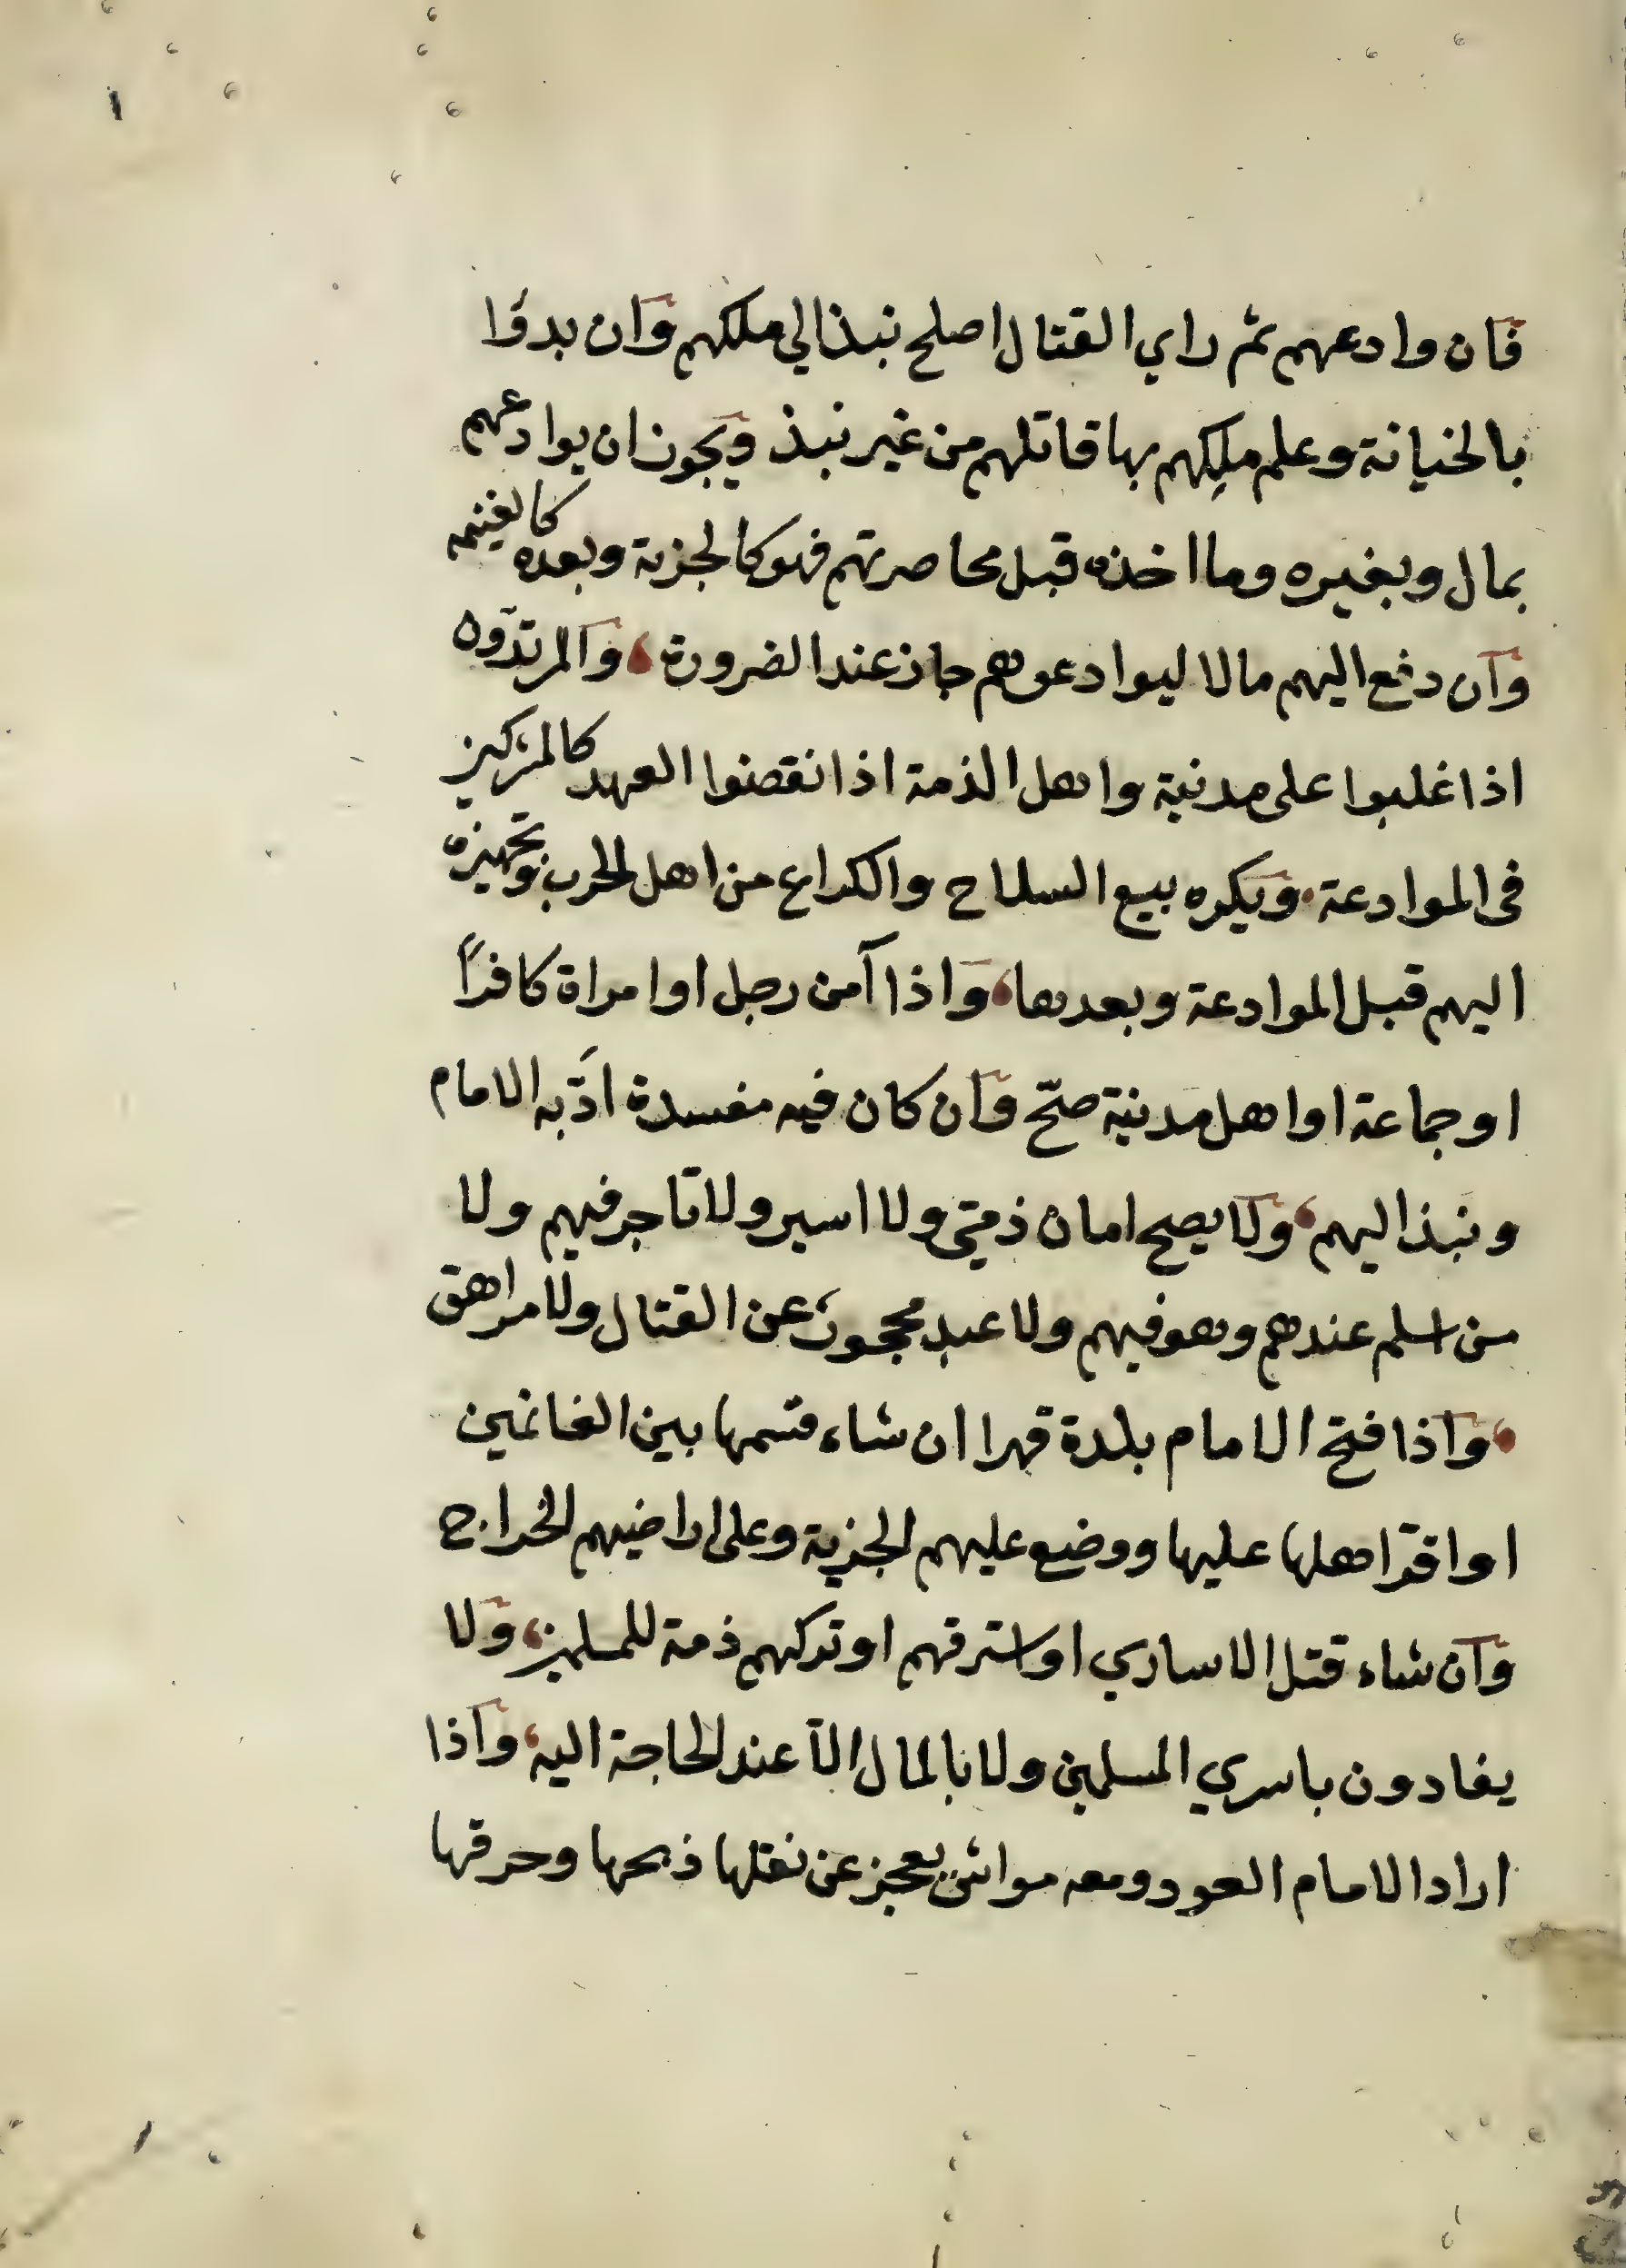 فان وادعهم ثم راي القتال اصلح نبذ الي ملكهم وان بدؤا
بالخيانة وعلم ملكهم بها قاتلهم من غير نبذ ويجوز ان يوادعهم
بمال وبغيره وما اخذه قبل محاصرتهم فهو كالجزية وبعده كالغنيمه
وان دفع اليهم مالا ليوادعوهم جاز عند الضرورة، والمرتدون
اذا غلبوا على مدينة واهل الذمة اذا نقضوا العهد كالمشركين
فى الموادعة. ويكره بيع السلاح والكراع من اهل الحرب وتجهيزه
اليهم قبل الموادعة وبعدها، واذا آمن رجل او امراة كافرًا
او جماعة او اهل مدينة صحّ وان كان فيه مفسدة ادّبه الامام
ونبذ اليهم، ولا يصح امان ذمّي ولا اسير ولا تاجر فيهم ولا
من اسلم عندهم وهو فيهم ولا عبدٍ محجورٍ عن القتال ولا مراهق
، واذا فتح الامام بلدة قهرا ان شاء قسمها بين الغانمين
او اقرّ اهلها عليها ووضع عليهم الجزية وعلى اراضيهم الخراج
وان شاء قتل الاساري او استرقهم او تركهم ذمة للمسلمين، ولا
يفادون باسري المسلمين ولا بالمال الّا عند الحاجة اليه، واذا
اراد الامام العود ومعه مواش يعجز عن نقلها ذبحها وحرقها